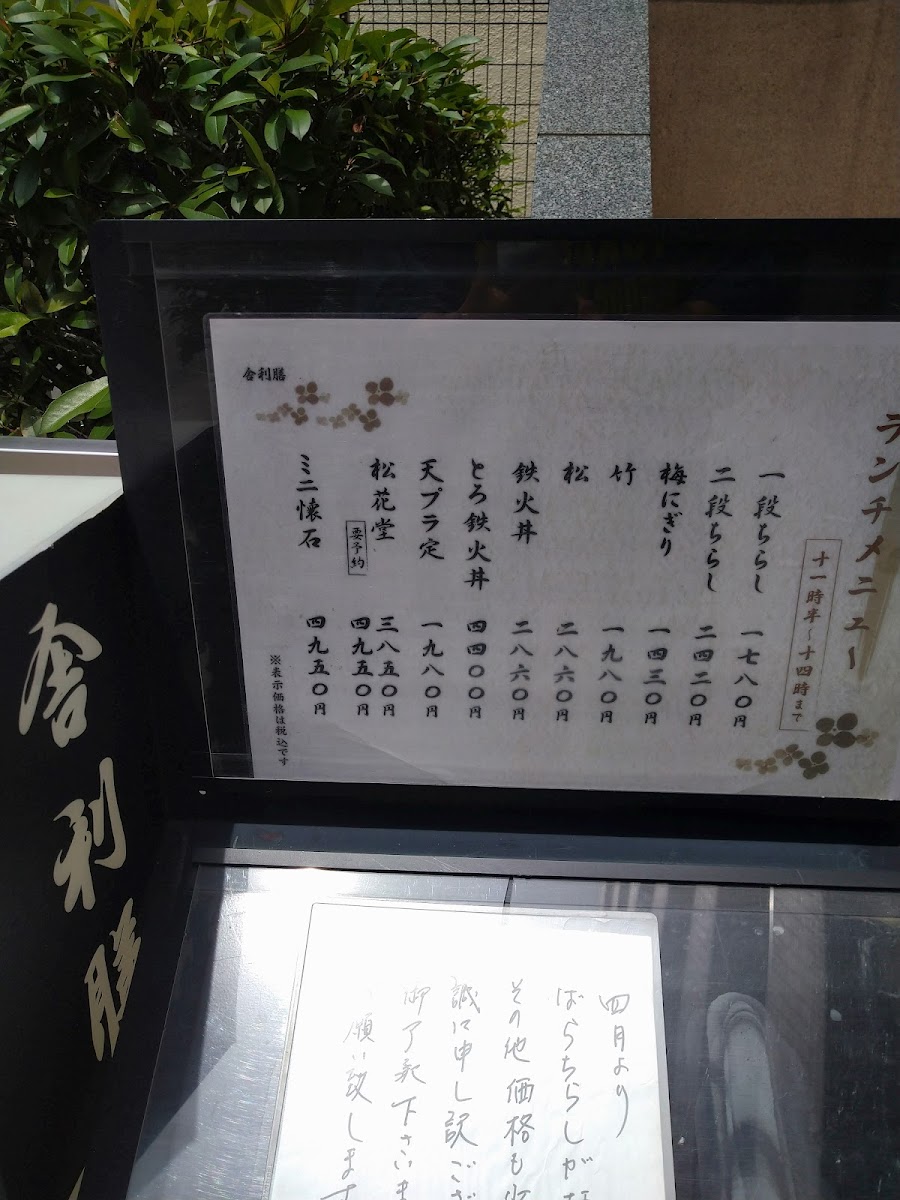 ランチメニュー
十一時半～十四時まで
一段ちらし 一七八〇円
二段ちらし 二四二〇円
梅にぎり 一四三〇円
竹 一九八〇円
松 二八六〇円
鉄火丼 二八六〇円
とろ鉄火丼 四四〇〇円
天プラ定 一九八〇円
松花堂 三八五〇円
要予約 四九五〇円
ミニ懐石 四九五〇円
※表示価格は税込です
舎利膳
舎利膳
四月より
ばらちらしが
その他価格も
誠に申し訳ござ
御了承下さいま
願い致します